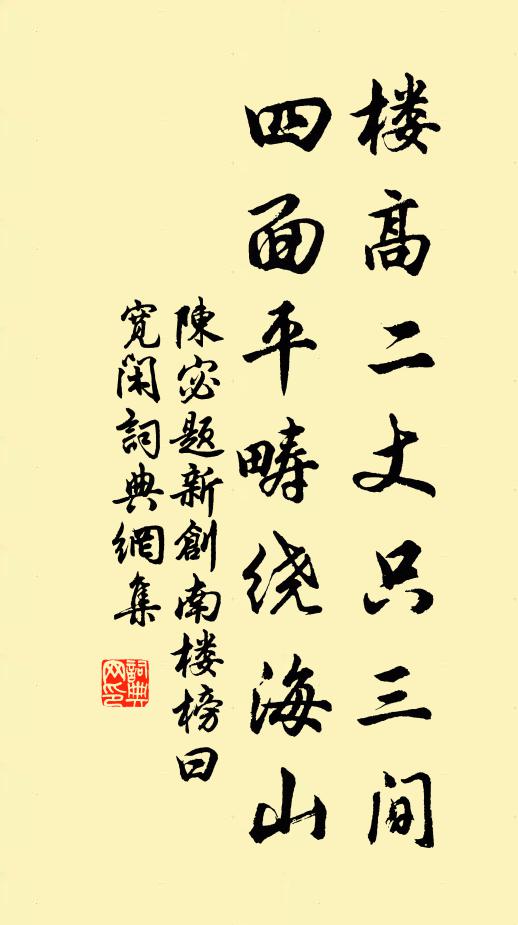 楼高二丈只三间
四面平畴绕海山
陳宓题新創南楼榜曰
寛闲詞典網集
詞典
网印